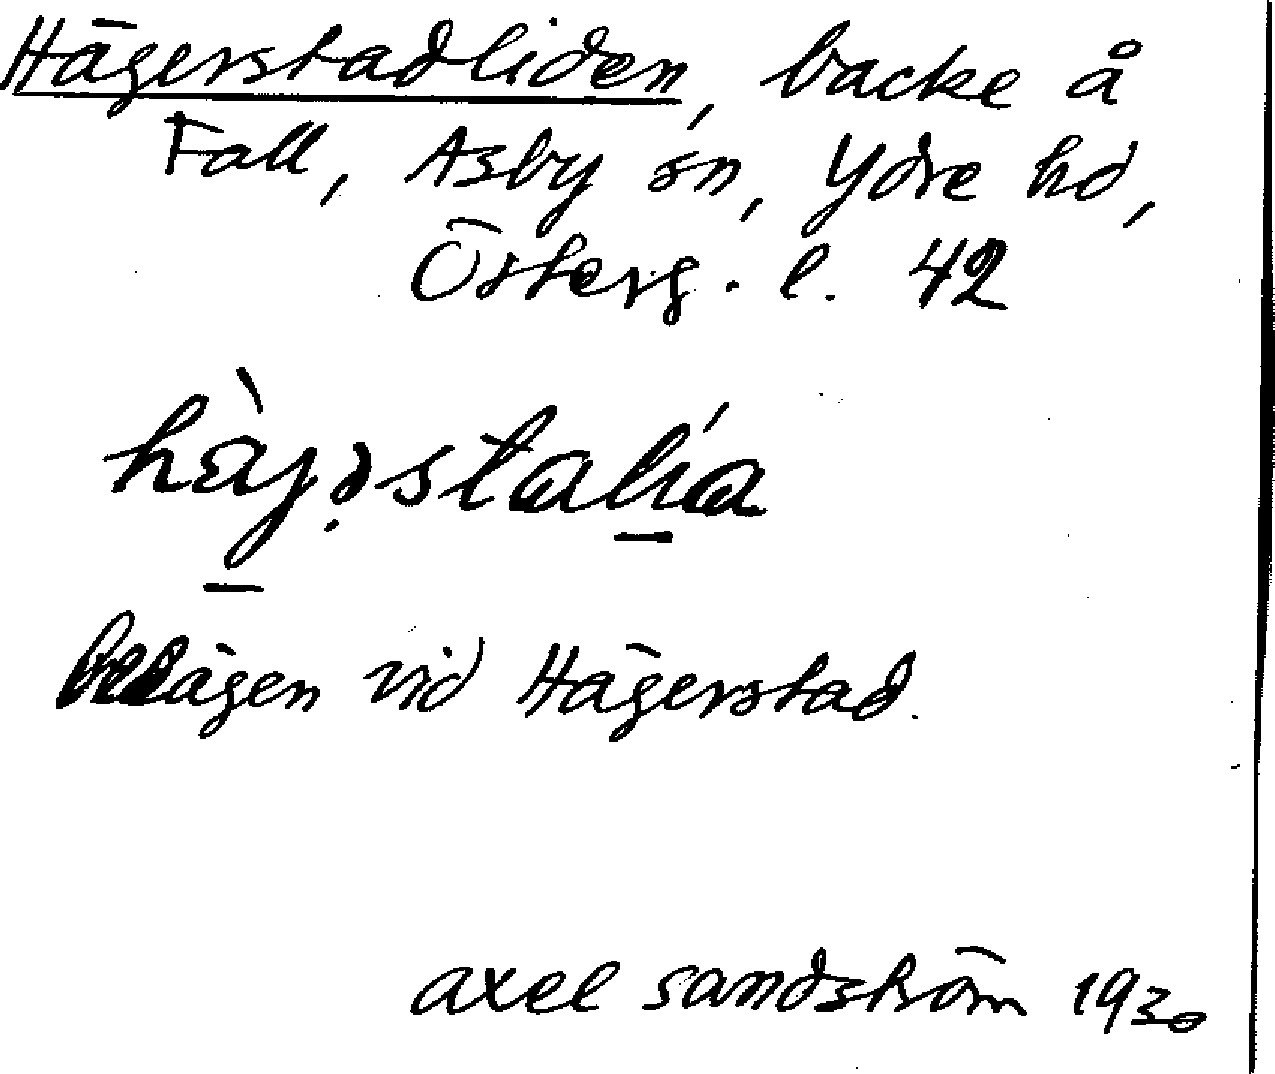 Hägerstadliden, backe å
Fall, Asby sn, Ydre hd,
Österg. l. 42
hàjəstalía
Belägen vid Hägerstad.
Axel Sandström 1930